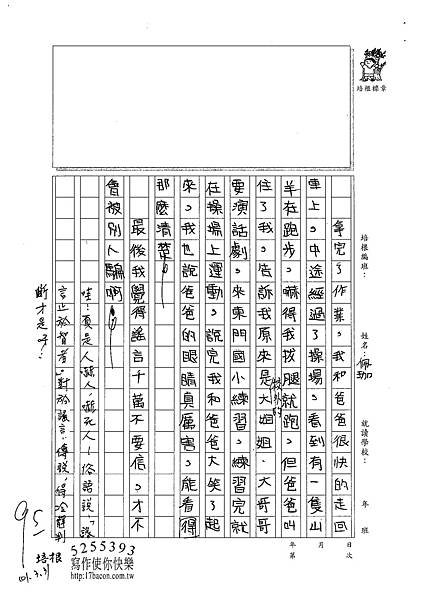 培根標章
培根編班：
姓名：佩珈
就讀學校：
年 班
年 月 日
第 次
拿完了作業，我和爸爸很快的走回
車上。中途經過了操場，看到有一隻山
羊在跑步，嚇得我拔腿就跑。但爸爸叫
住了我，告訴我原來是大姐姐、大哥哥
校外的
要演話劇，來東門國小練習，練習完就
在操場上運動。說完我和爸爸大笑了起
來，我也說爸爸的眼睛真厲害，能看得
那麼清楚！
最後我覺得謠言千萬不要信，才不
會被別人騙啊！
哇！真是人嚇人，嚇死人！俗話說：「謠
言止於智者」對於謠言，傳說，
斷才是呀！
95
101.3.31
培根
5255393
寫作使你快樂
http://17bacon.com.tw/